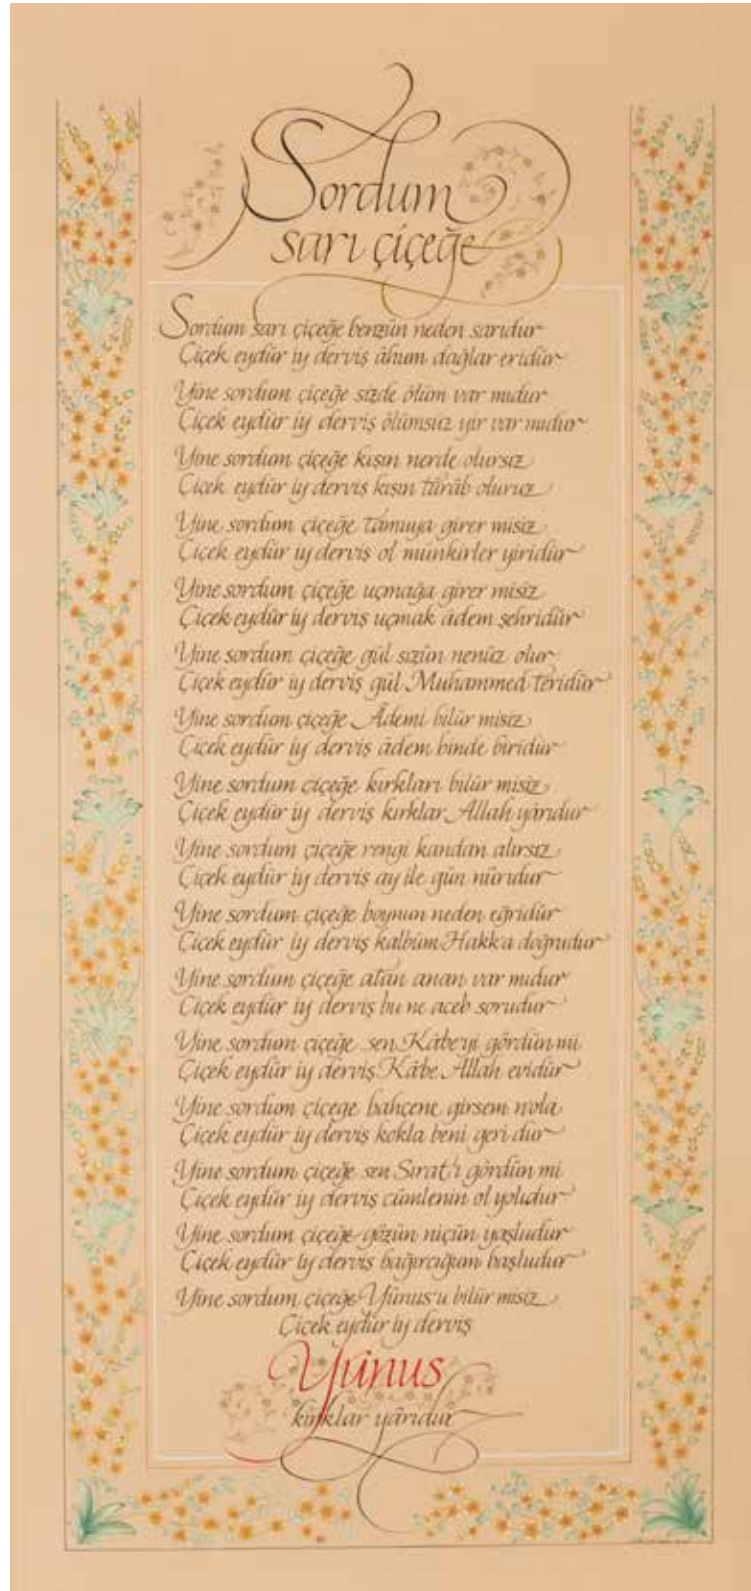 Sordum
sarı çiçeğe
Sordum sarı çiçeğe benzün neden sarıdur
Çiçek eydür iy derviş âhum dağlar eridür
Yine sordum çiçeğe sizde ölüm var mıdur
Çiçek eydür iy derviş ölümsüz yir var mıdur
Yine sordum çiçeğe kışın nerde olursız
Çiçek eydür iy derviş kışın türâb oluruz
Yine sordum çiçeğe tamuya girer misiz
Çiçek eydür iy derviş ol münkirler yiridür
Yine sordum çiçeğe uçmağa girer misiz
Çiçek eydür iy derviş uçmak âdem şehridür
Yine sordum çiçeğe gül sizün nenüz olur
Çiçek eydür iy derviş gül Muhammed teridür
Yine sordum çiçeğe Âdemi bilür misiz
Çiçek eydür iy derviş âdem binde biridür
Yine sordum çiçeğe kırkları bilür misiz
Çiçek eydür iy derviş kırklar Allah yâridur
Yine sordum çiçeğe rengi kandan alırsız
Çiçek eydür iy derviş ay ile gün nûrıdur
Yine sordum çiçeğe boynun neden eğridür
Çiçek eydür iy derviş kalbüm Hakk'a doğrudur
Yine sordum çiçeğe atan anan var mıdur
Çiçek eydür iy derviş bu ne aceb sorudur
Yine sordum çiçeğe sen Kâbe'yi gördün mi
Çiçek eydür iy derviş Kâbe Allah evidür
Yine sordum çiçeğe bahçene girsem n'ola
Çiçek eydür iy derviş kokla beni geri dur
Yine sordum çiçeğe sen Sırat'ı gördün mi
Çiçek eydür iy derviş cümlenün ol yolıdur
Yine sordum çiçeğe gözün niçün yaşludur
Çiçek eydür iy derviş bağırcığum başludur
Yine sordum çiçeğe Yûnus'u bilür misiz
Çiçek eydür iy derviş
Yûnus
kırklar yâridur